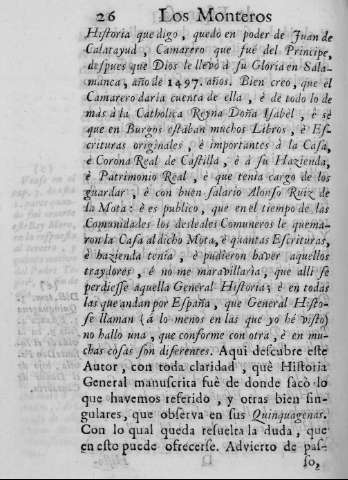 26 Los Monteros
Historia que digo, quedò en poder de Juan de
Calatayud, Camarero que fué del Principe,
despues que Dios le llevò à su Gloria en Sala-
manca, año de 1497. años. Bien creo, que el
Camarero daria cuenta de ella, è de todo lo de
màs à la Catholica Reyna Doña Isabèl, è sè
que en Burgos estaban muchos Libros, è Es-
crituras originales, è importantes à la Casa,
è Corona Real de Castilla, è à su Hazienda,
è Patrimonio Real, è que tenia cargo de los
guardar, è con buen salario Alonso Ruiz de
la Mota: è es publico, que en el tiempo de las
Comunidades los desleales Comuneros le quema-
ron la Casa al dicho Mota, è quantas Escrituras,
è hazienda tenia, è pudieron haver aquellos
traydores, è no me maravillaria, que alli se
perdiesse aquella General Historia; è en todas
las que andan por España, que General Histo-
se llaman (à lo menos en las que yo hé visto)
no hallo una, que conforme con otra, è en mu-
chas cosas son diferentes. Aqui descubre este
Autor, con toda claridad, què Historia
General manuscrita fuè de donde sacò lo
que havemos referido, y otras bien sin-
gulares, que observa en sus Quinquagenas.
Con lo qual queda resuelta la duda, que
en esto puede ofrecerse. Advierto de pas-
so,